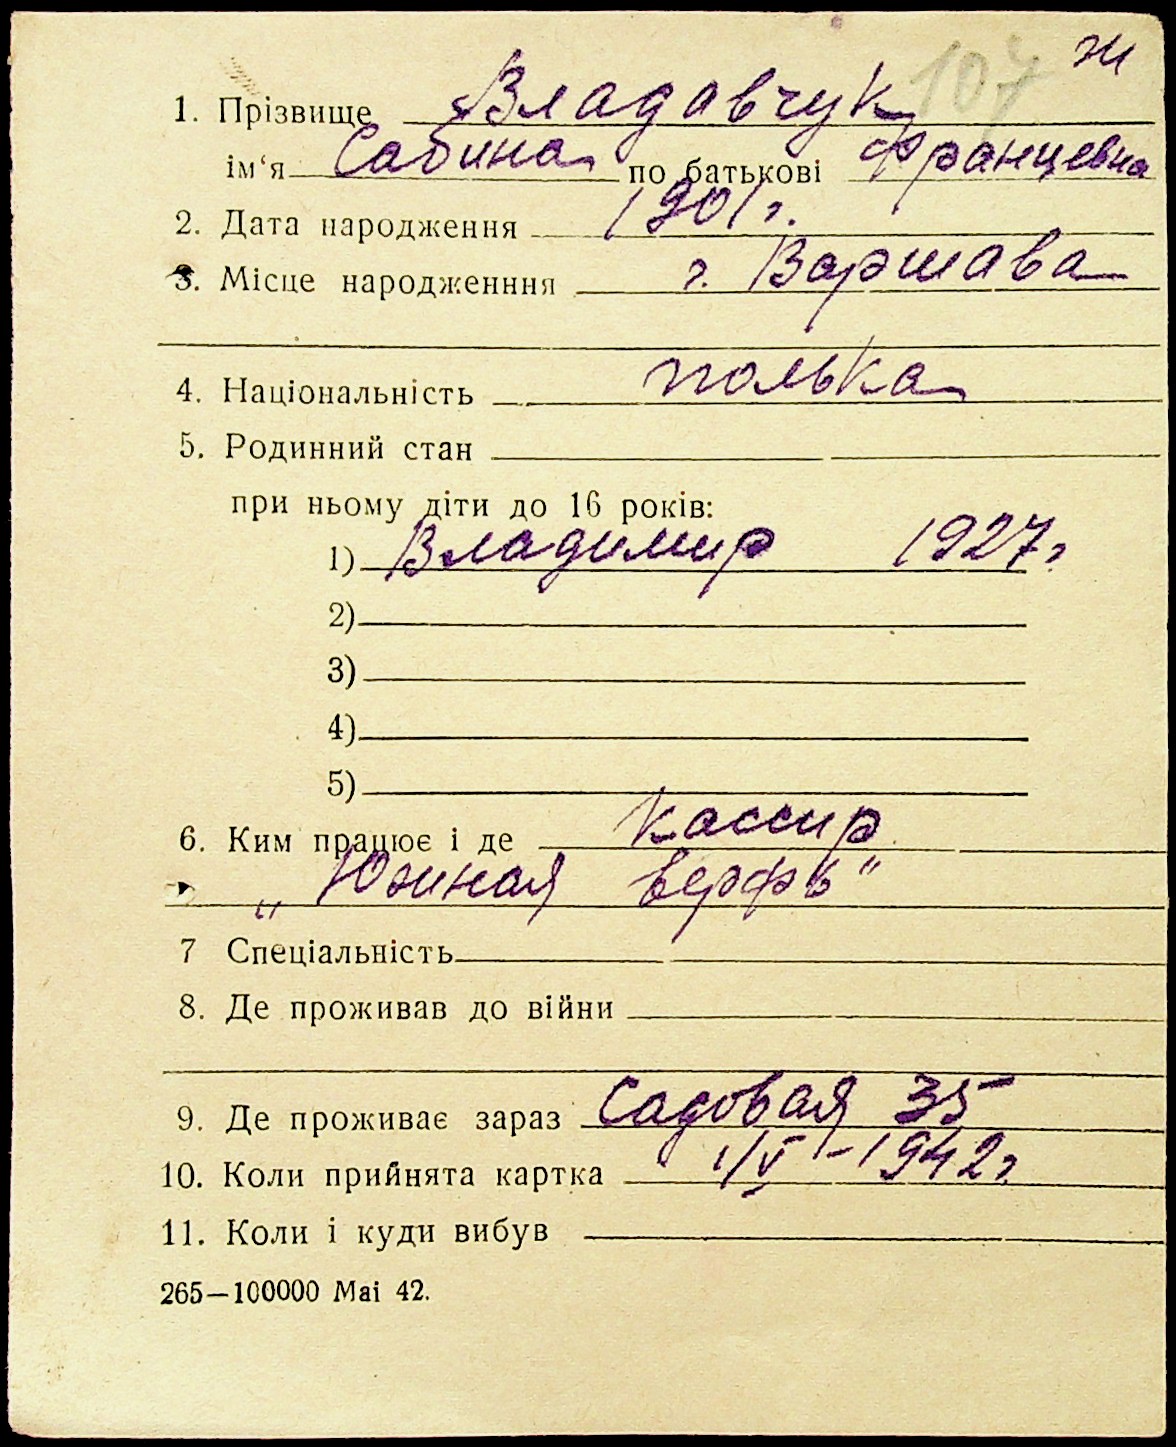 107 ж
1. Прізвище Владавчук
ім‘я Сабина по батькові Францевна
2. Дата народження 1901 г.
3. Місце народженння г. Варшава
4. Національність полька
5. Родинний стан
при ньому діти до 16 років:
1) Владимир 1927 г.
2)
3)
4)
5)
6. Ким працює і де Кассир
„Южная верфь“
7 Спеціальність
8. Де проживав до війни
9. Де проживає зараз Садовая 35
10. Коли прийнята картка 1/V - 1942 г.
11. Коли і куди вибув
265—100000 Mai 42.